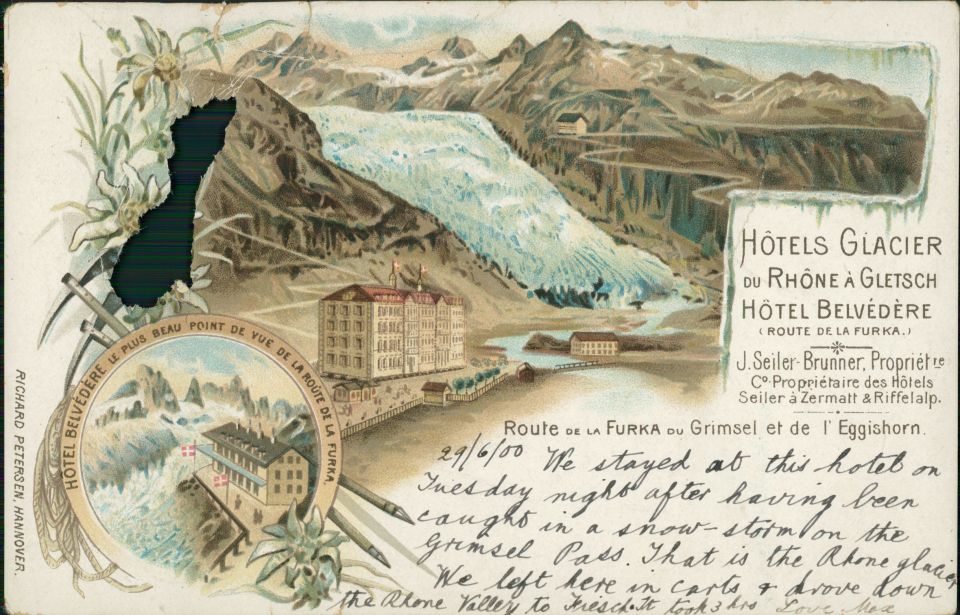 HÔTELS GLACIER
DU RHÔNE À GLETSCH
HÔTEL BELVÉDÈRE
(ROUTE DE LA FURKA.)
J. Seiler-Brunner, Propriét re
Co-Propriétaire des Hôtels
Seiler à Zermatt & Riffelalp.
Route DE LA FURKA DU Grimsel et de l'Eggishorn.
HÔTEL BELVÉDÈRE LE PLUS BEAU POINT DE VUE DE LA ROUTE DE LA FURKA
RICHARD PETERSEN, HANNOVER.
29/6/00 We stayed at this hotel on
Tuesday night after having been
caught in a snow-storm on the
Grimsel Pass. That is the Rhone glacier
We left here in carts & drove down
the Rhone Valley to took 3 hrs Love